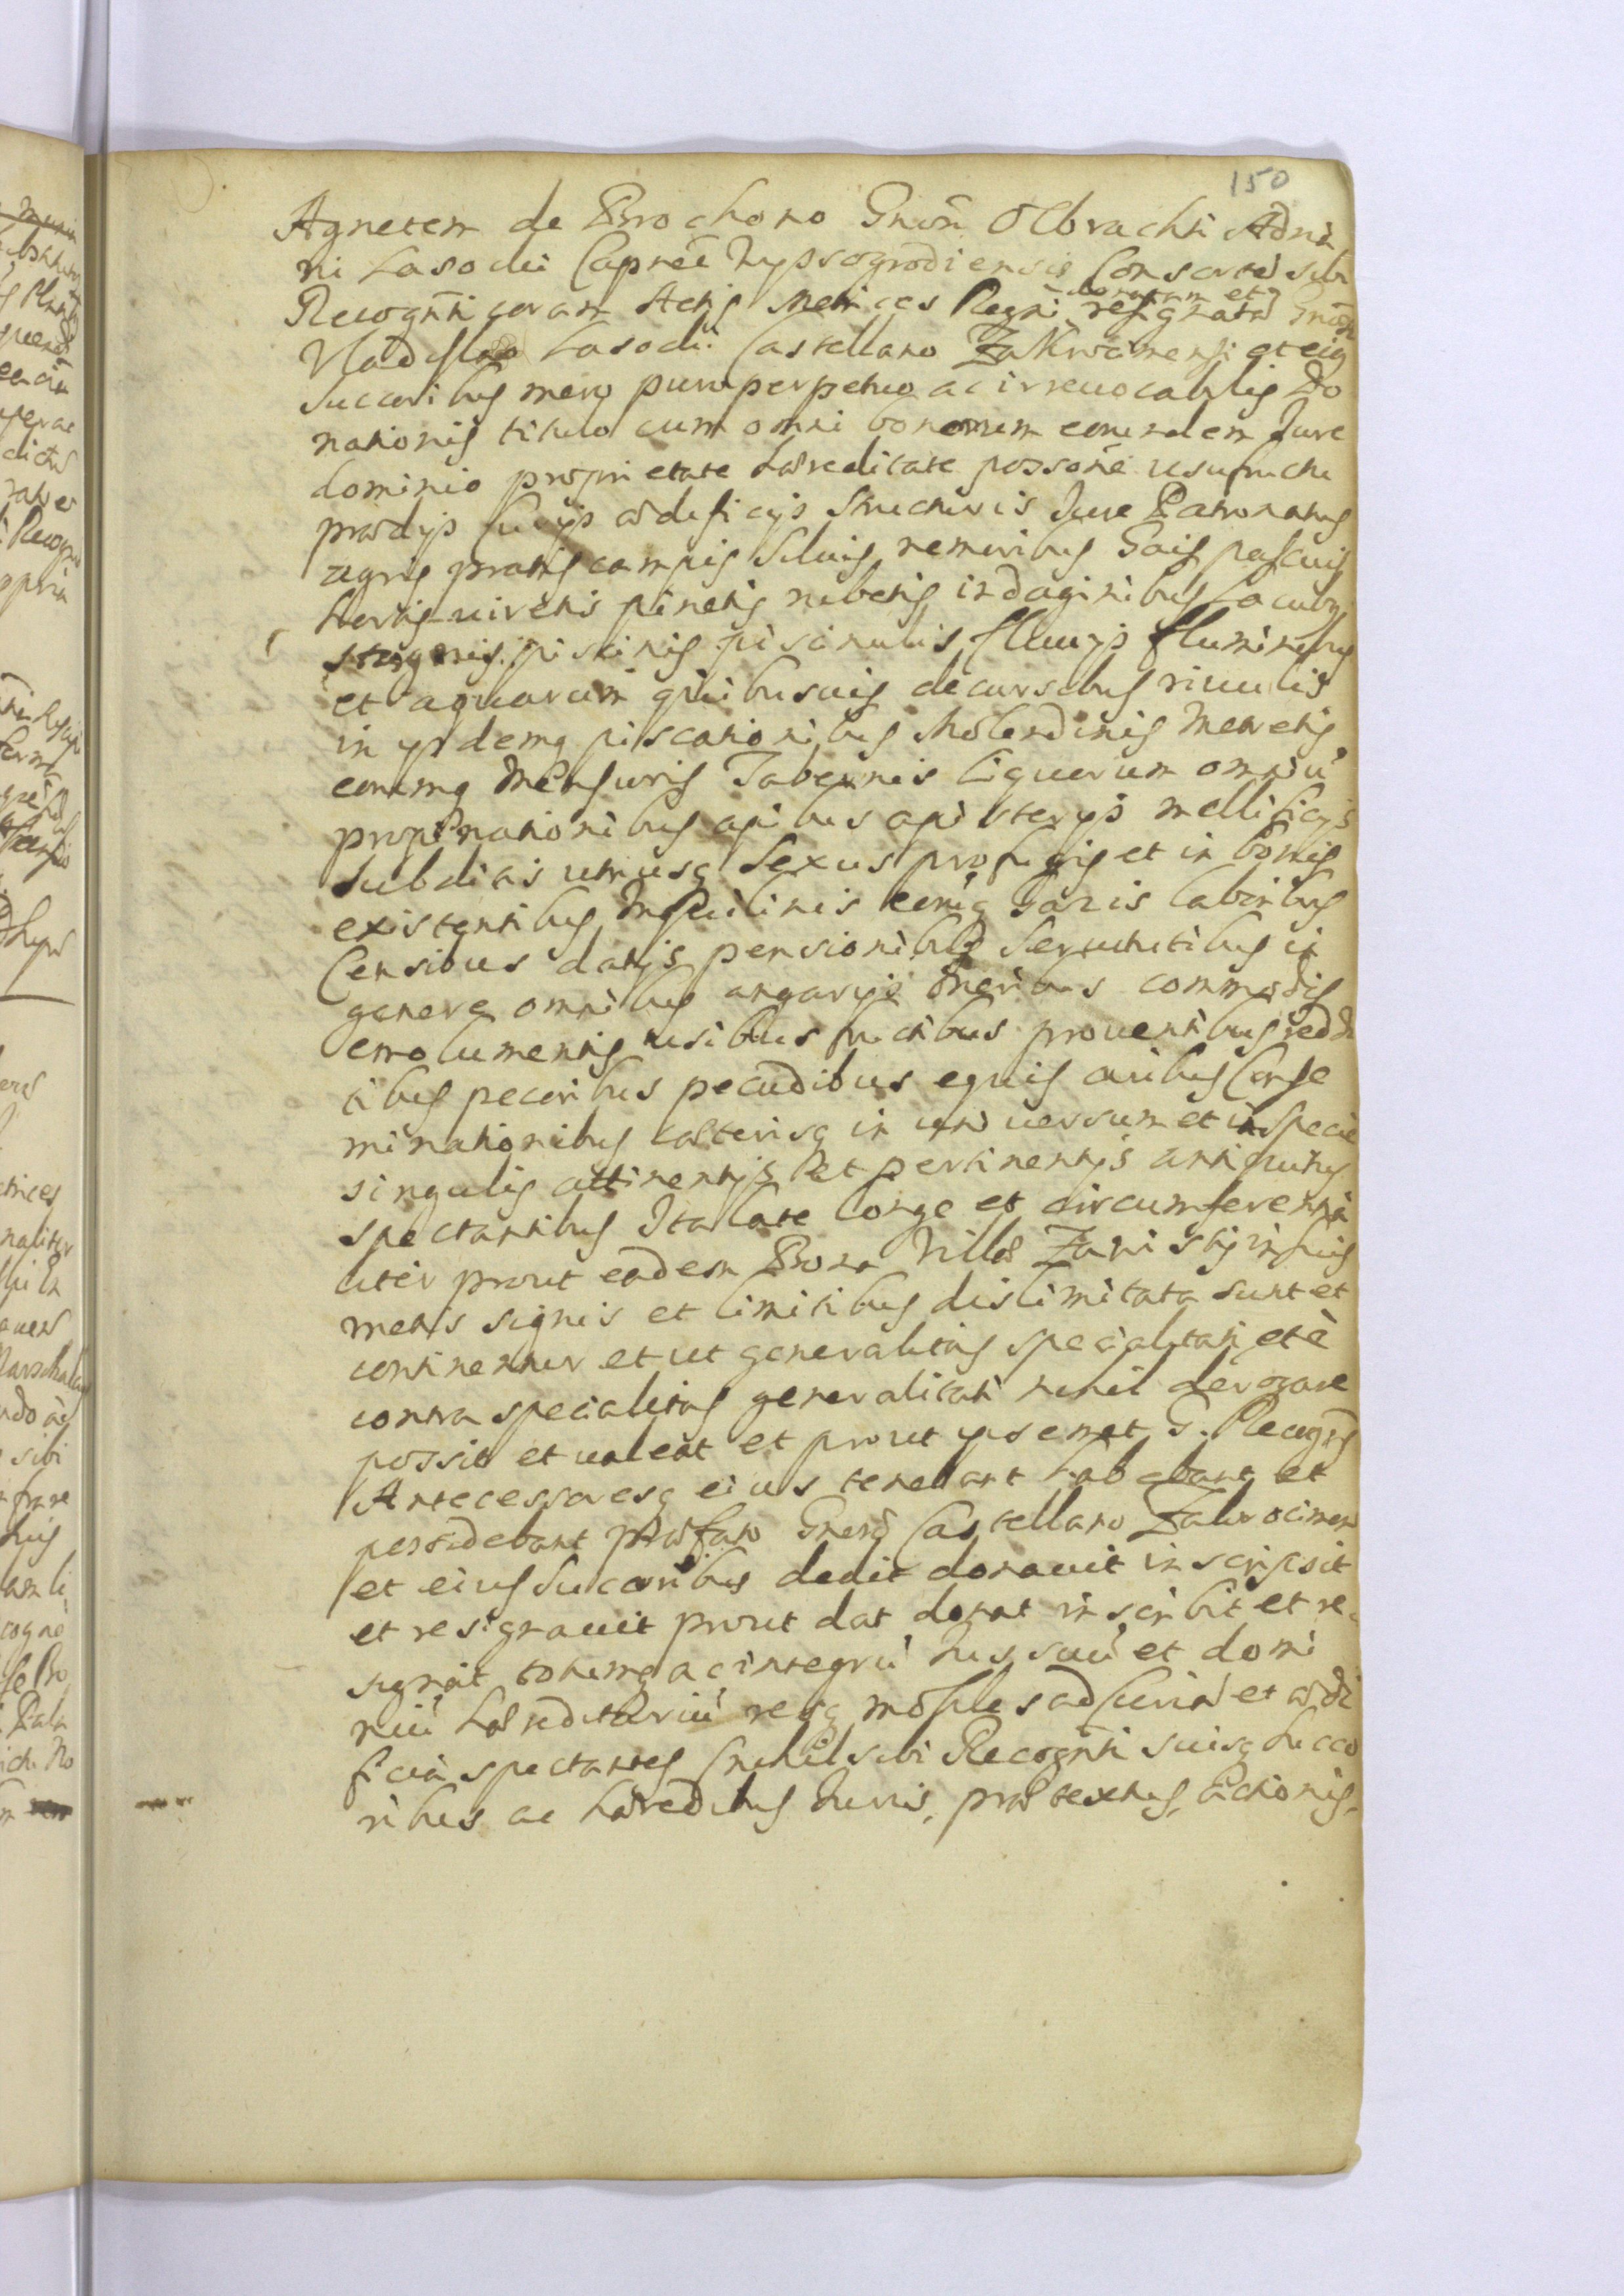 150
Agnetem de Brochono Gnosi Olbrachti Adria
ni Lasocki Capnei Wyssogrodiensis Consorte sibi
Recognti coram Actis Metrices Regni donatam et resignata Gnoso
Vladislao Lasocki Castellano Zakrocimensi et eiq
Succoribus mero puro perpetuo ac irreuocabilis Do
nationis titulo cum omni bonorum eorundem Jure
dominio proprietate hæreditate possone usufructu
prædijs fucijs ædificijs Structuris Jure Patronatus
agris pratis campis Siluis nemoribus Gais pascuis
hortis uiretis pinetis rubetis indaginibus Lacubq
stagnis piscinis piscinulis fluuijs fluminibus
et aquarum quibusuis decursibus riuulis
in ysdemq piscationibus Molendinis Meretis
eorumq Mensuris Tabernis liquorum omniu
propinationibus apibus apisterijs mellificijs
Subditis utriusq Sexus profugis et in bonis
existentibus Inquilinis eoruq Gazis laboribus
Censibus datijs pensionibus Seruitutibus in
genere omnibus angarijs oneribus commodis
emolumentis usibus fructibus prouentibus reddi
tibus pecoribus pecudibus equis ouibus Conse
minationibus cæterisq in uniuersum et in specie
singulis attinentijs et pertinentijs antiquitus
spectantibus Ita late longe et circumferentia
liter prout eadem Bona Villæ in suis
metis signis et limitibus dislimitata sunt et
continentur et ut generalitas specialitati et è
contra specialitas generalitati nihil derogare
possit et ualeat et prout ipsemet G. Recogns
Antecessoresq eius tenebant habebant et
possidebant præfato Gneroso Castellano Zakrocimen
et eius Succoribus dedit donauit inscripsit
et resignauit prout dat donat inscribit et re
signat totumq ac integru Ius suu et domi
niu hæreditariu resq mobiles ad Curia et ædi
ficia spectantes nihil sibi Recognti suisq Succo
ribus ac hæredibus Iuris, prætextus, actionis,